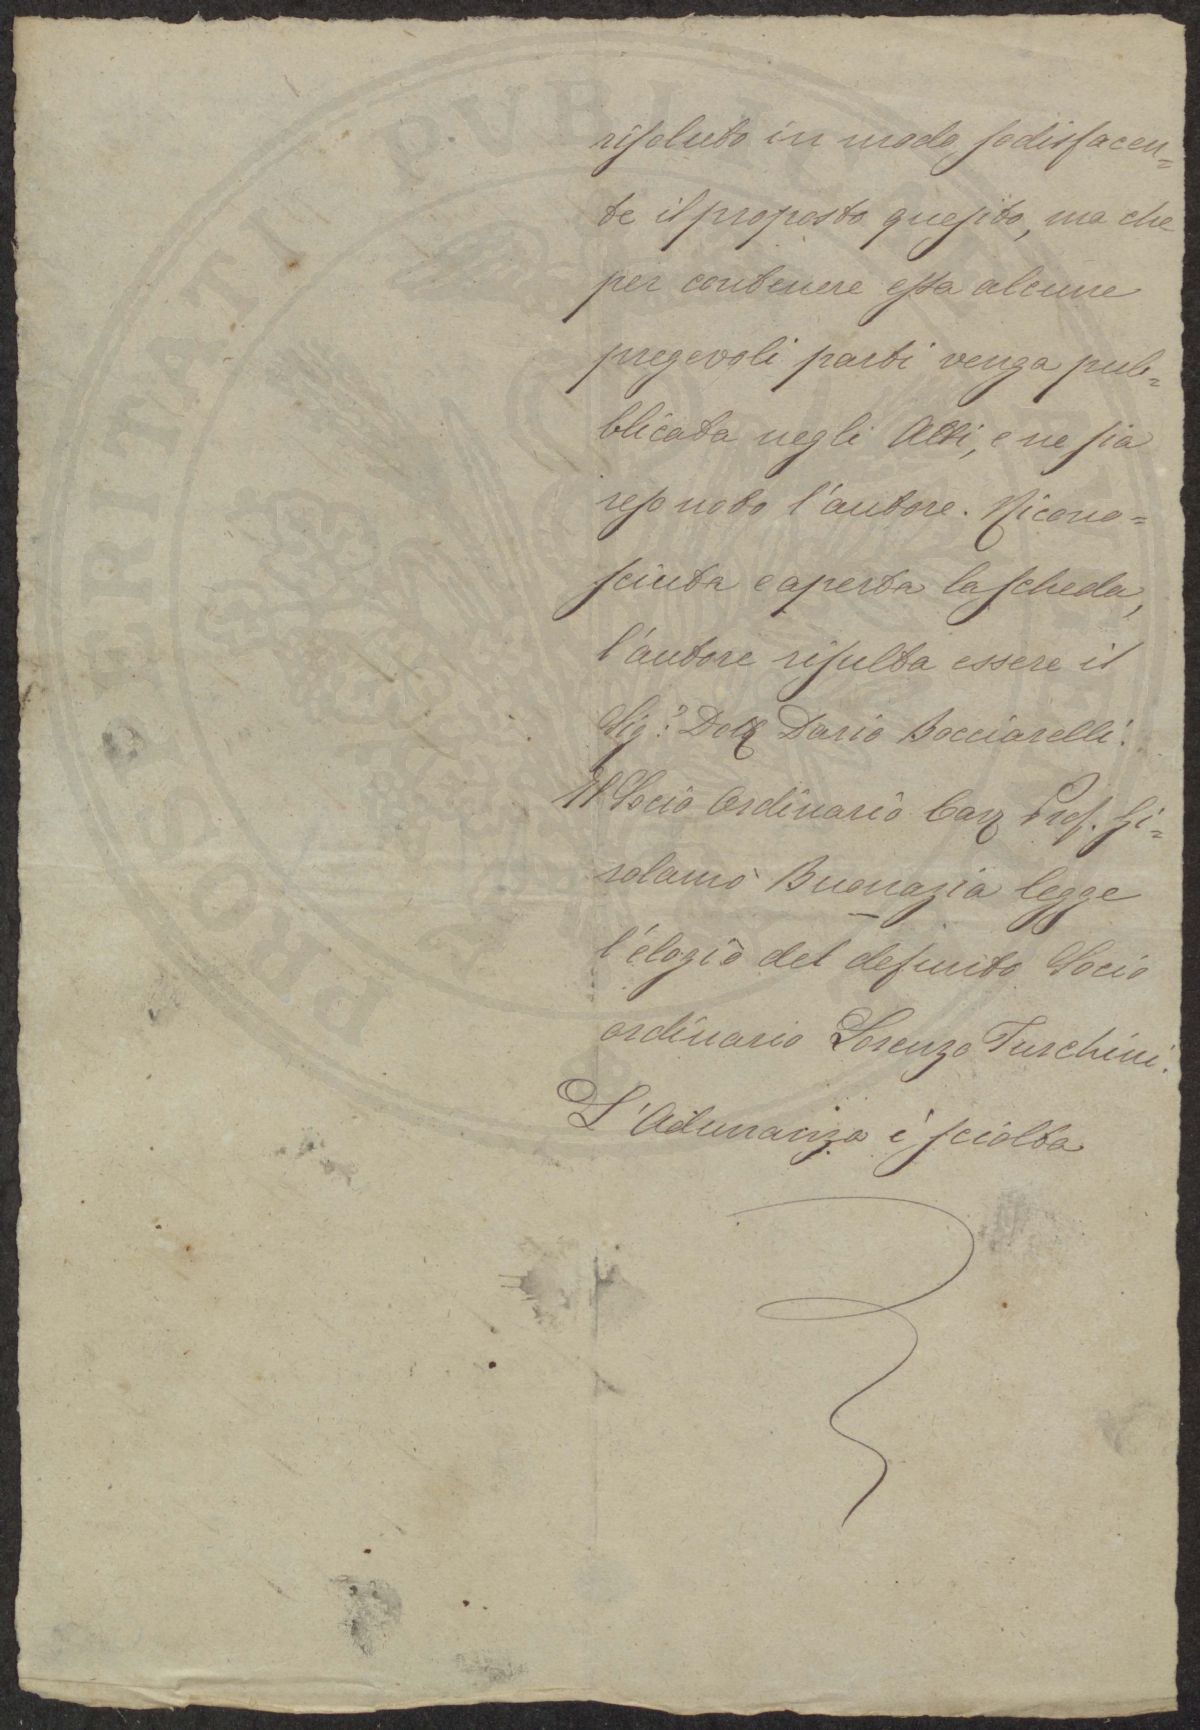 risoluto in modo sodisfacen=
te il proposto quesito, ma che
per contenere essa alcune
pregevoli parti venga pub=
blicata negli Atti, e ne sia
reso noto l'autore. Ricono=
sciuta e aperta la scheda,
l'autore risulta essere il
Sig.r Dott Dario Bocciarelli.
Il Socio Ordinario Cav Prof. Gi=
rolamo Buonazia legge
l'elogio del defunto Socio
ordinario Lorenzo Turchini.
L'Adunanza è sciolta